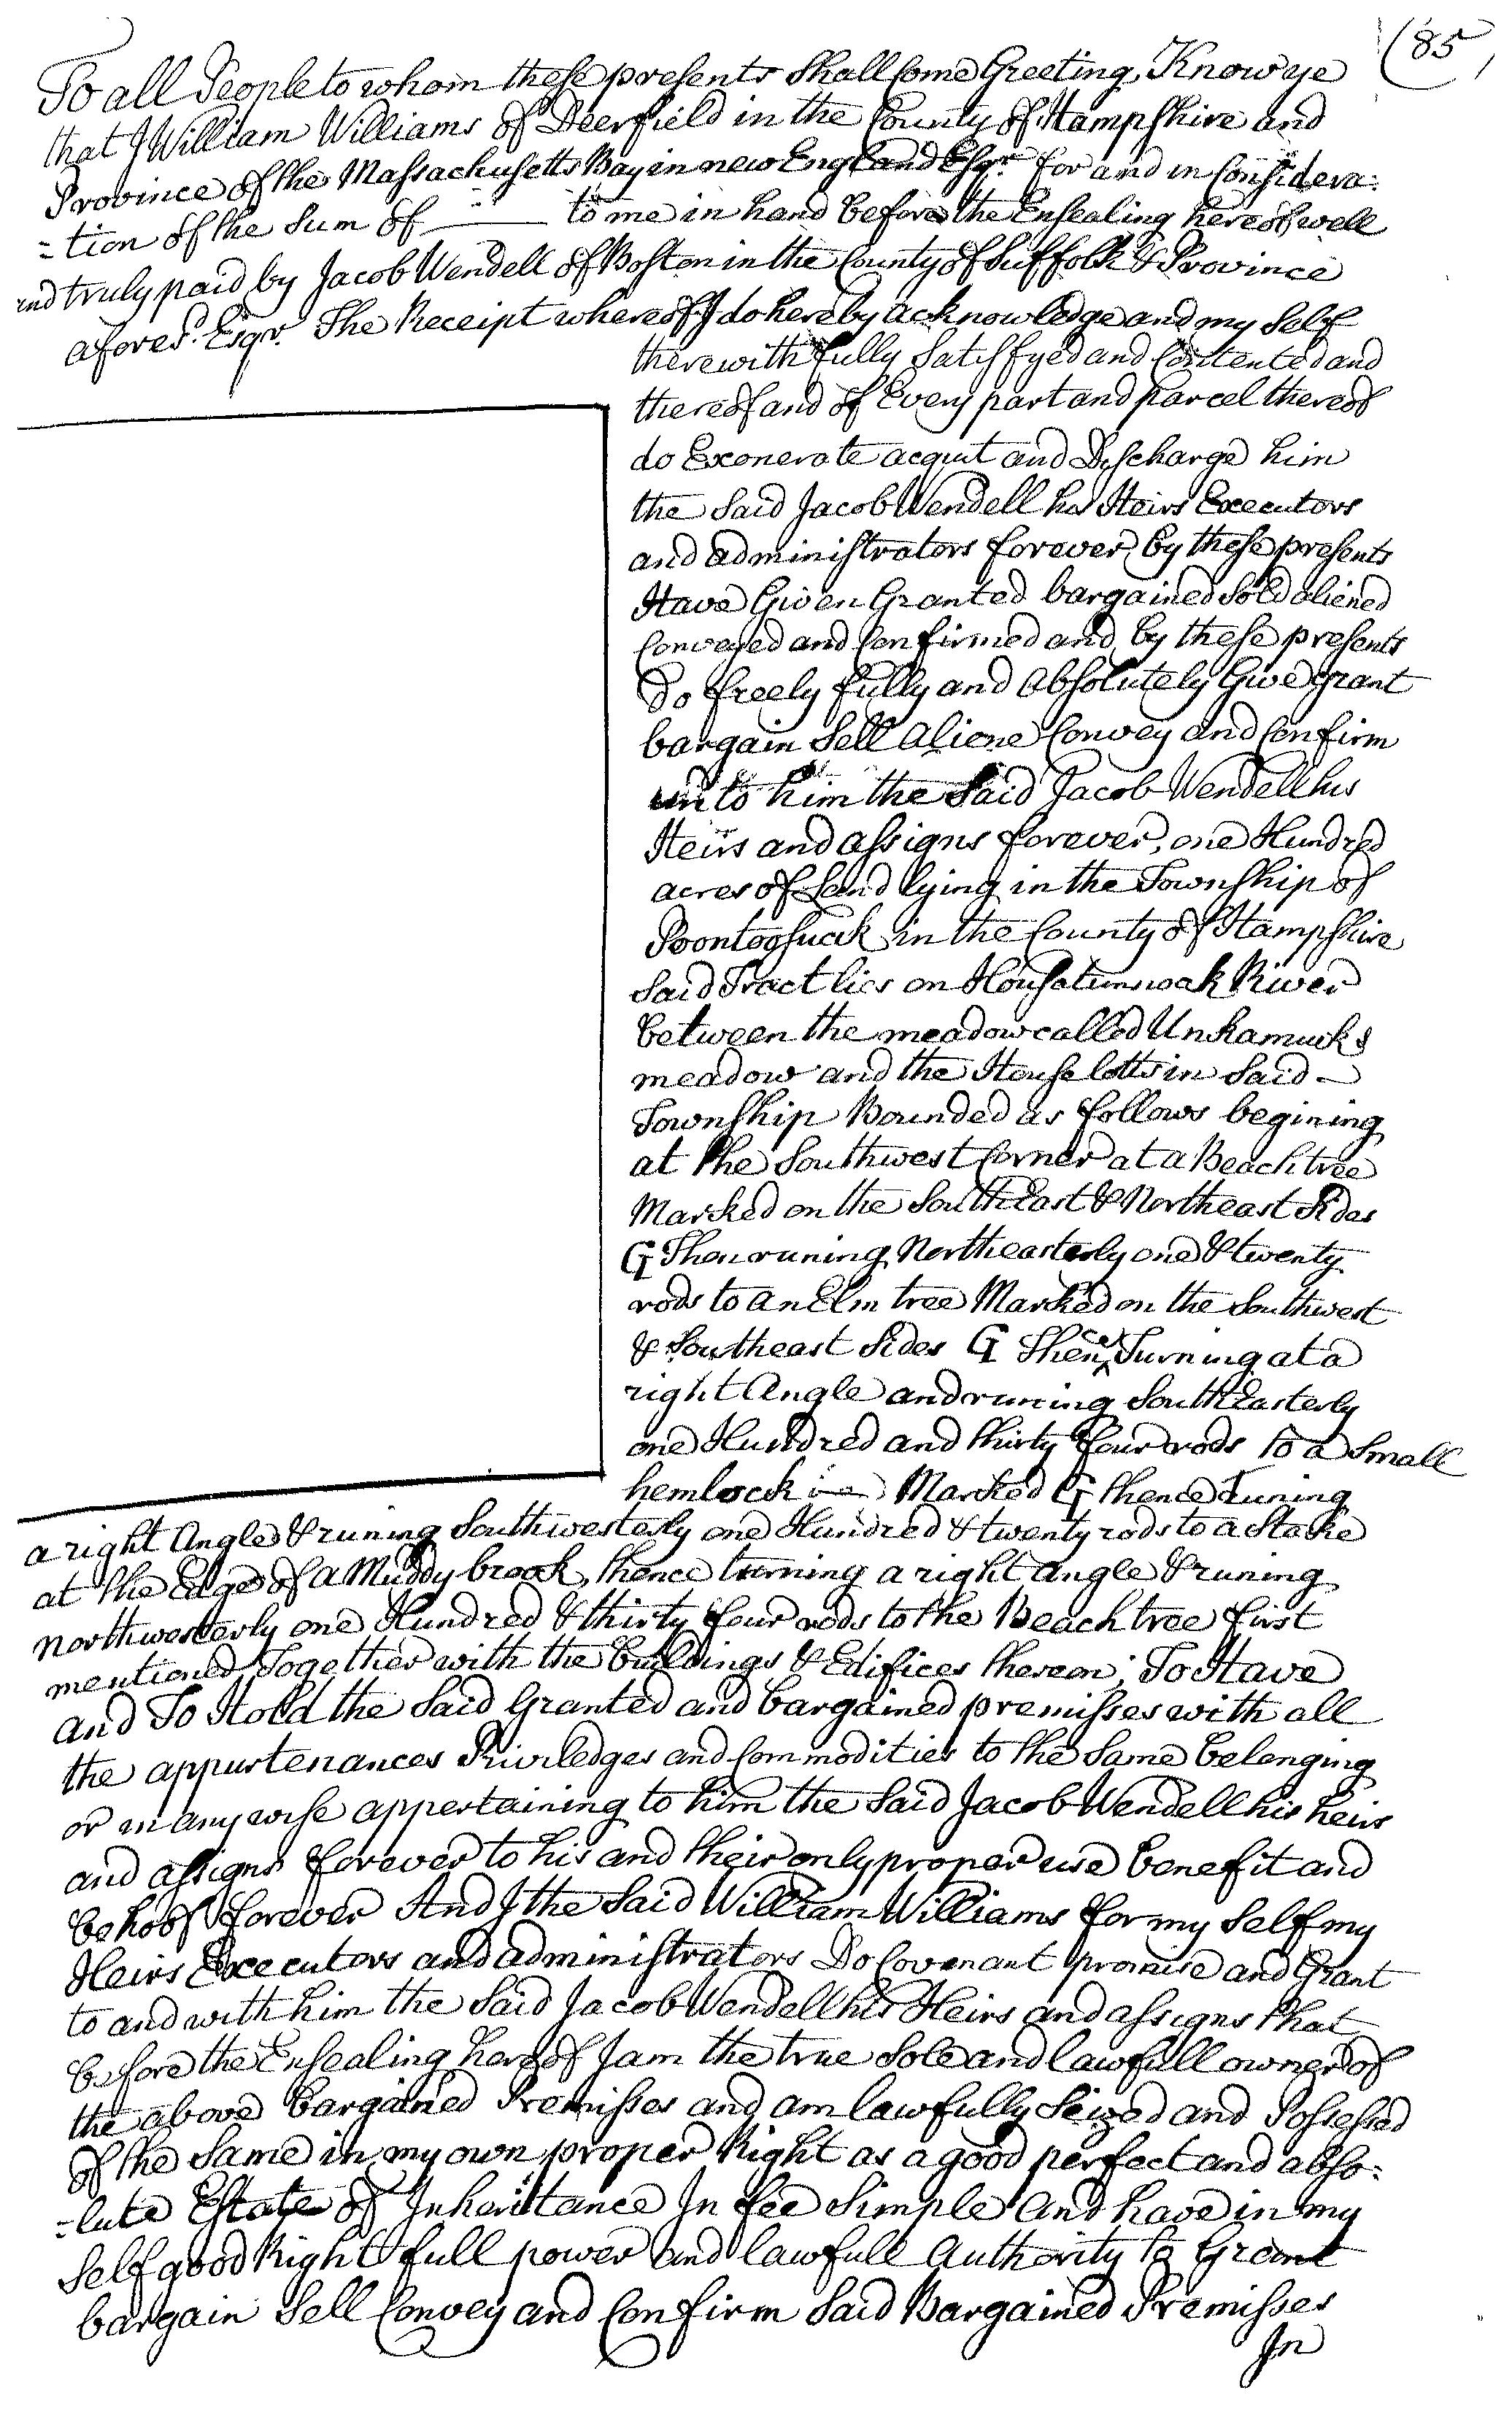 (85)
To all People to whom these presents shall Come Greeting, Know ye
that I William Williams of Deerfield in the County of Hampshire and
Province of the Massachusetts Bay in new England Esqr. for and in Considera:
=tion of the Sum of —— to me in hand before the Ensealing hereof well
and truly paid by Jacob Wendell of Boston in the County of Suffolk & Province
aforesd. Esqr. The Receipt whereof I do hereby acknowledge and my Self
therewith fully Satisfyed and Contented and
thereof and of Every part and parcel thereof
do Exonerate acquit and Discharge him
the Said Jacob Wendell his Heirs Executors
and administrators forever by these presents
Have Given Granted bargained Sold aliened
Conveyed and Confirmed and by these presents
Do freely fully and absolutely Give Grant
bargain Sell aliene Convey and Confirm
unto him the Said Jacob Wendell his
Heirs and assigns forever, one Hundred
acres of Land lying in the Township of
Poontoosuck in the County of Hampshire
Said Tract lies on Housatunnoak River
between the meadow called Unkamucks
meadow and the House lotts in Said —
Township Bounded as follows begining
at the Southwest Corner at a Beach tree
Marked on the South East & Northeast Sides
G Then runing Northeasterly one & twenty
rods to an Elm tree Marked on the Southwest
& Southeast Sides G Thence Turning at a
right Angle and runing South Easterly
one Hundred and thirty four rods to a Small
hemlock Marked G thence Tuning
a right Angle & runing Southwesterly one Hundred & twenty rods to a Stake
at the Edge of a Muddy brook, thence turning a right Angle & runing
northwesterly one Hundred & thirty four rods to the Beach tree first
mentioned, Together with the buildings & Edifices thereon; To Have
and To Hold the Said Granted and bargained premisses with all
the appurtenances Priviledges and Commodities to the Same belonging
or in any wise appertaining to him the Said Jacob Wendell his heirs
and assigns forever to his and their only proper use benefit and
behoof forever And I the Said William Williams for my Self my
Heirs Executors and administrators Do Covenant promise and Grant
to and with him the Said Jacob Wendell his Heirs and assigns that
before the Ensealing hereof I am the true Sole and lawfull owner of
the above bargained Premisses and am lawfully Seized and Possessed
of the Same in my own proper Right as a good perfect and abso:
=lute Estate of Inheritance In fee Simple And have in my
Self good Right full power and lawfull Authority to Grant
bargain Sell Convey and Confirm Said Bargained Premisses
In